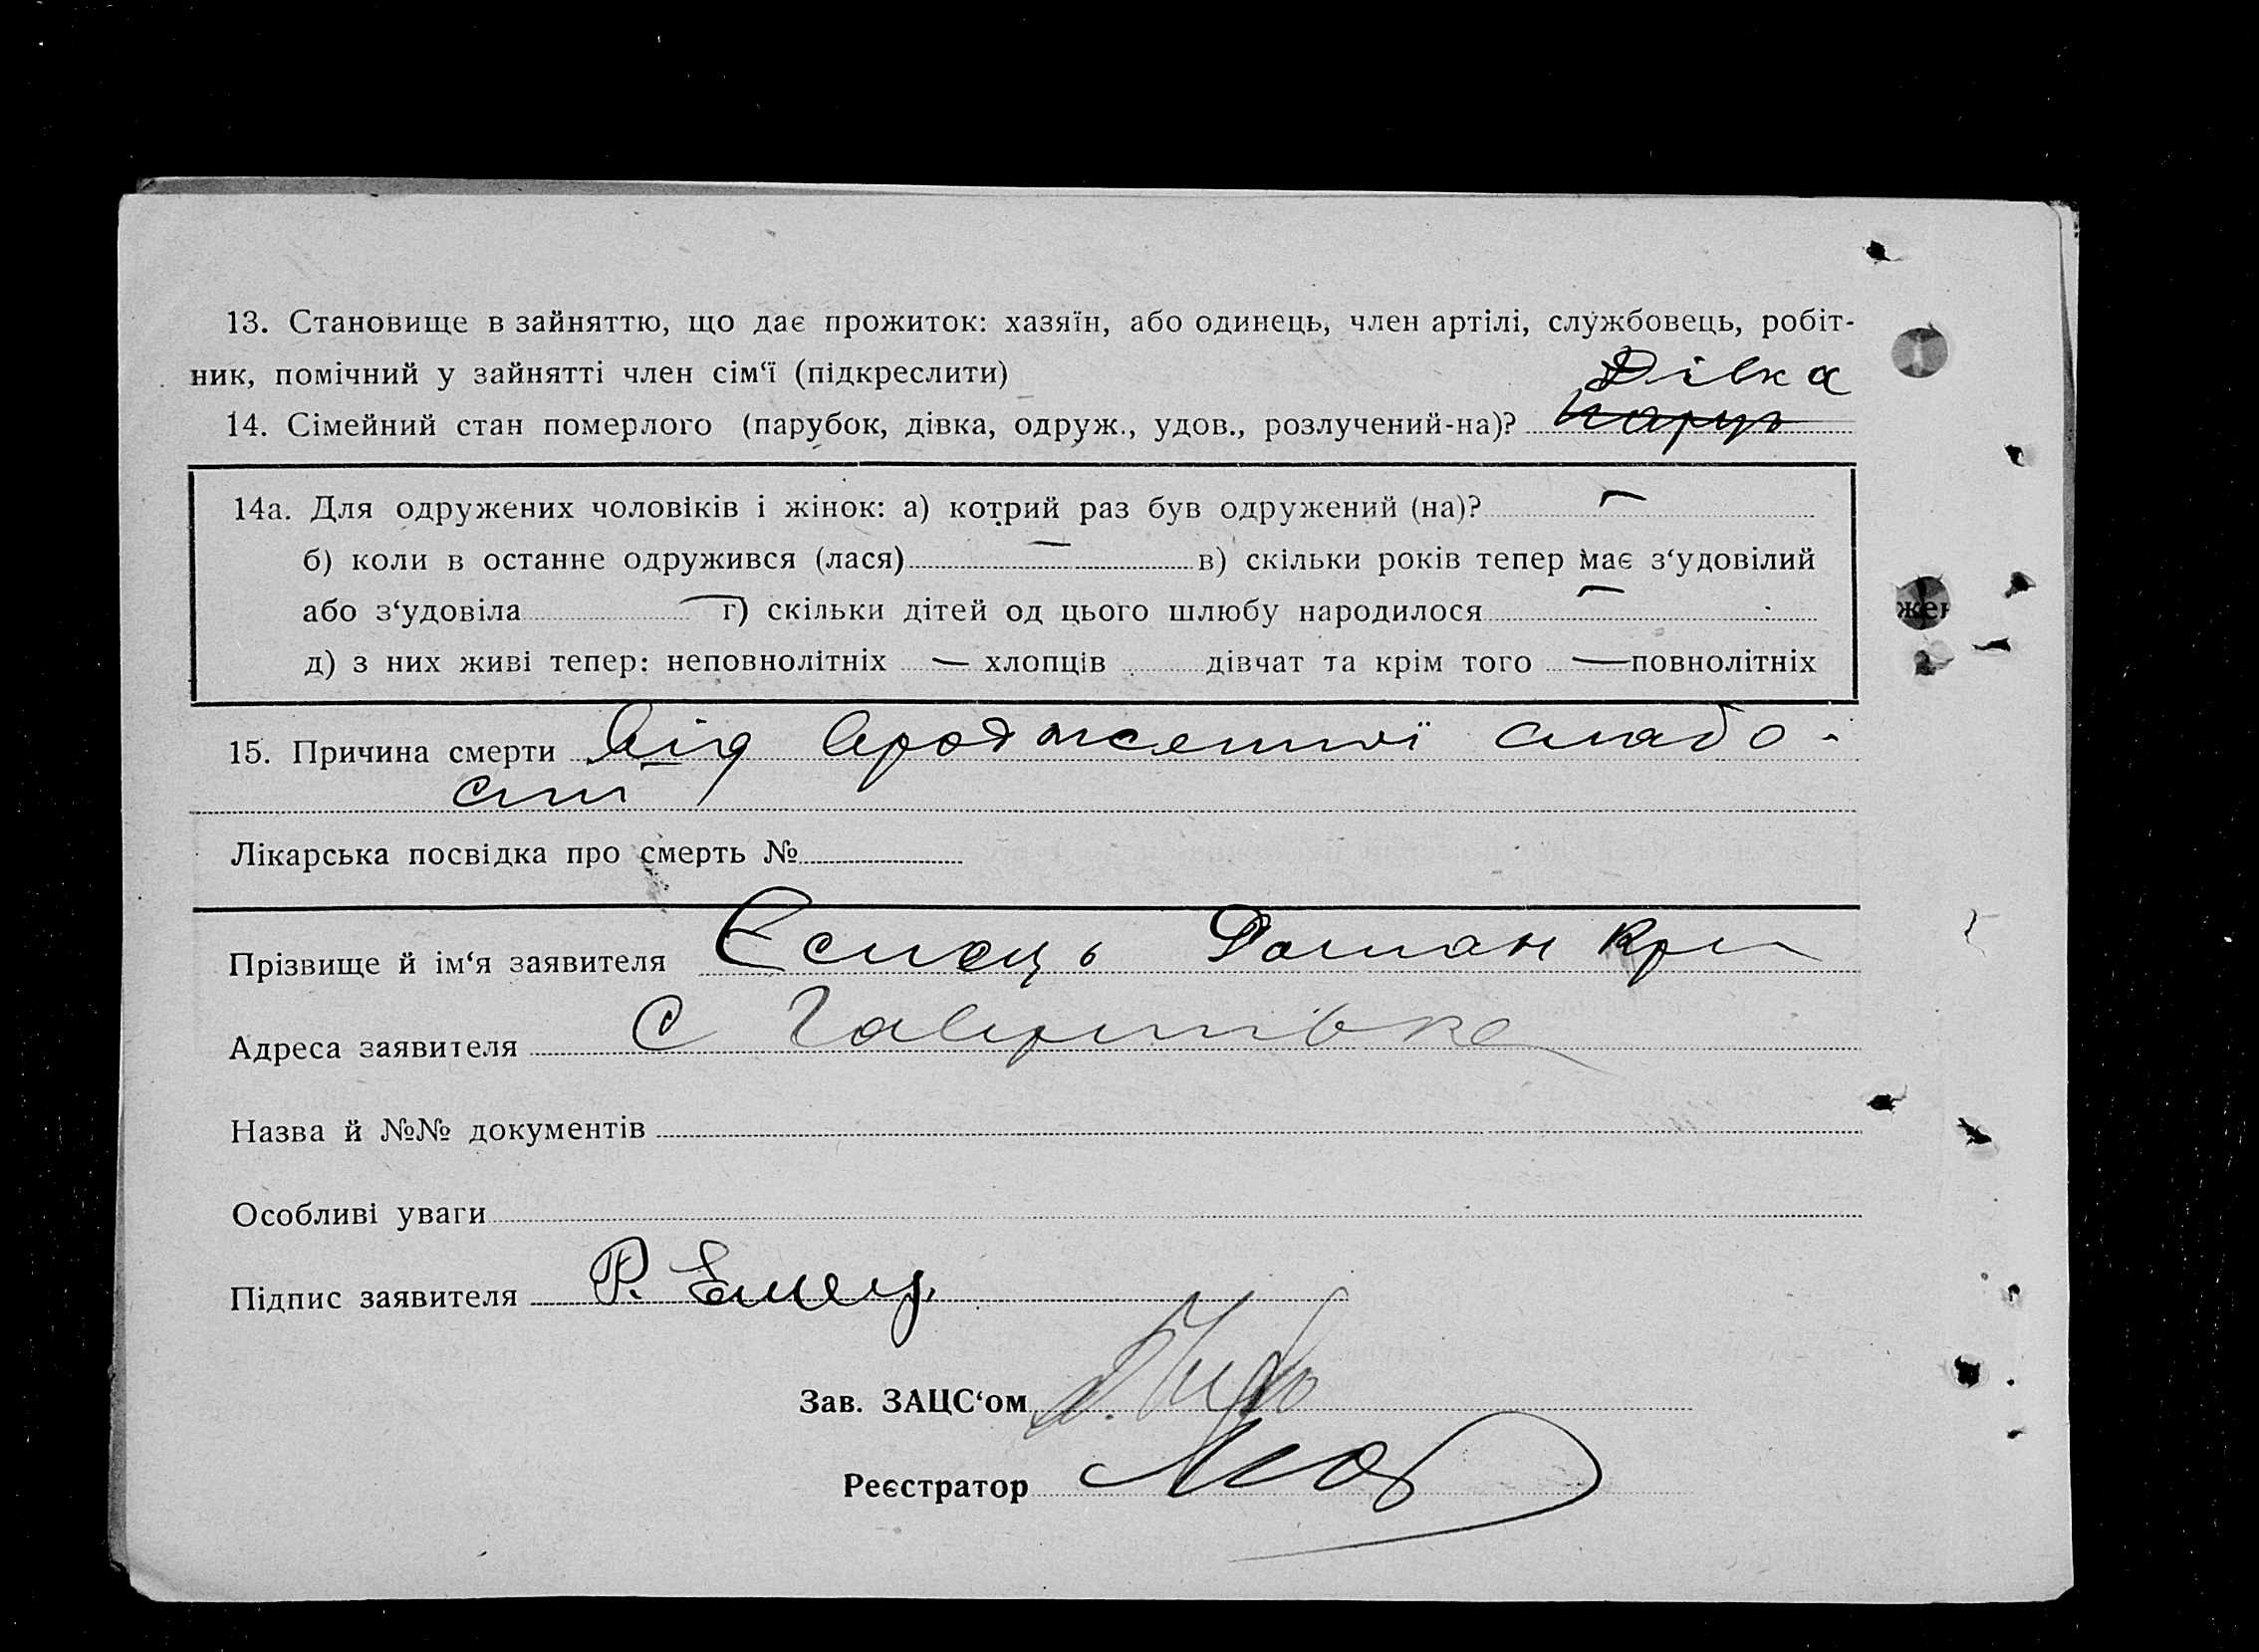 13. Становище в зайняттю, що дає прожиток: хазяїн, або одинець, член артілі, службовець, робіт-
ник, помічний у зайнятті член сім‘ї (підкреслити)
Дівка
14. Сімейний стан померлого (парубок, дівка, одруж., удов., розлучений-на)? паруб
14а. Для одружених чоловіків і жінок: а) котрий раз був одружений (на)? —
б) коли в останне одружився (лася) — в) скільки років тепер має з‘удовілий
або з‘удовіла — г) скільки дітей од цього шлюбу народилося —
д) з них живі тепер: неповнолітніх — хлопців дівчат та крім того — повнолітніх
15. Причина смерти Від вродженної слабо-
сти
Лікарська посвідка про смерть №
Прізвище й ім‘я заявителя Ємець Роман
Адреса заявителя с Гавришівка
Назва й №№ документів
Особливі уваги
Підпис заявителя Р. Емец
Зав. ЗАЦС‘ом
Реєстратор
жен